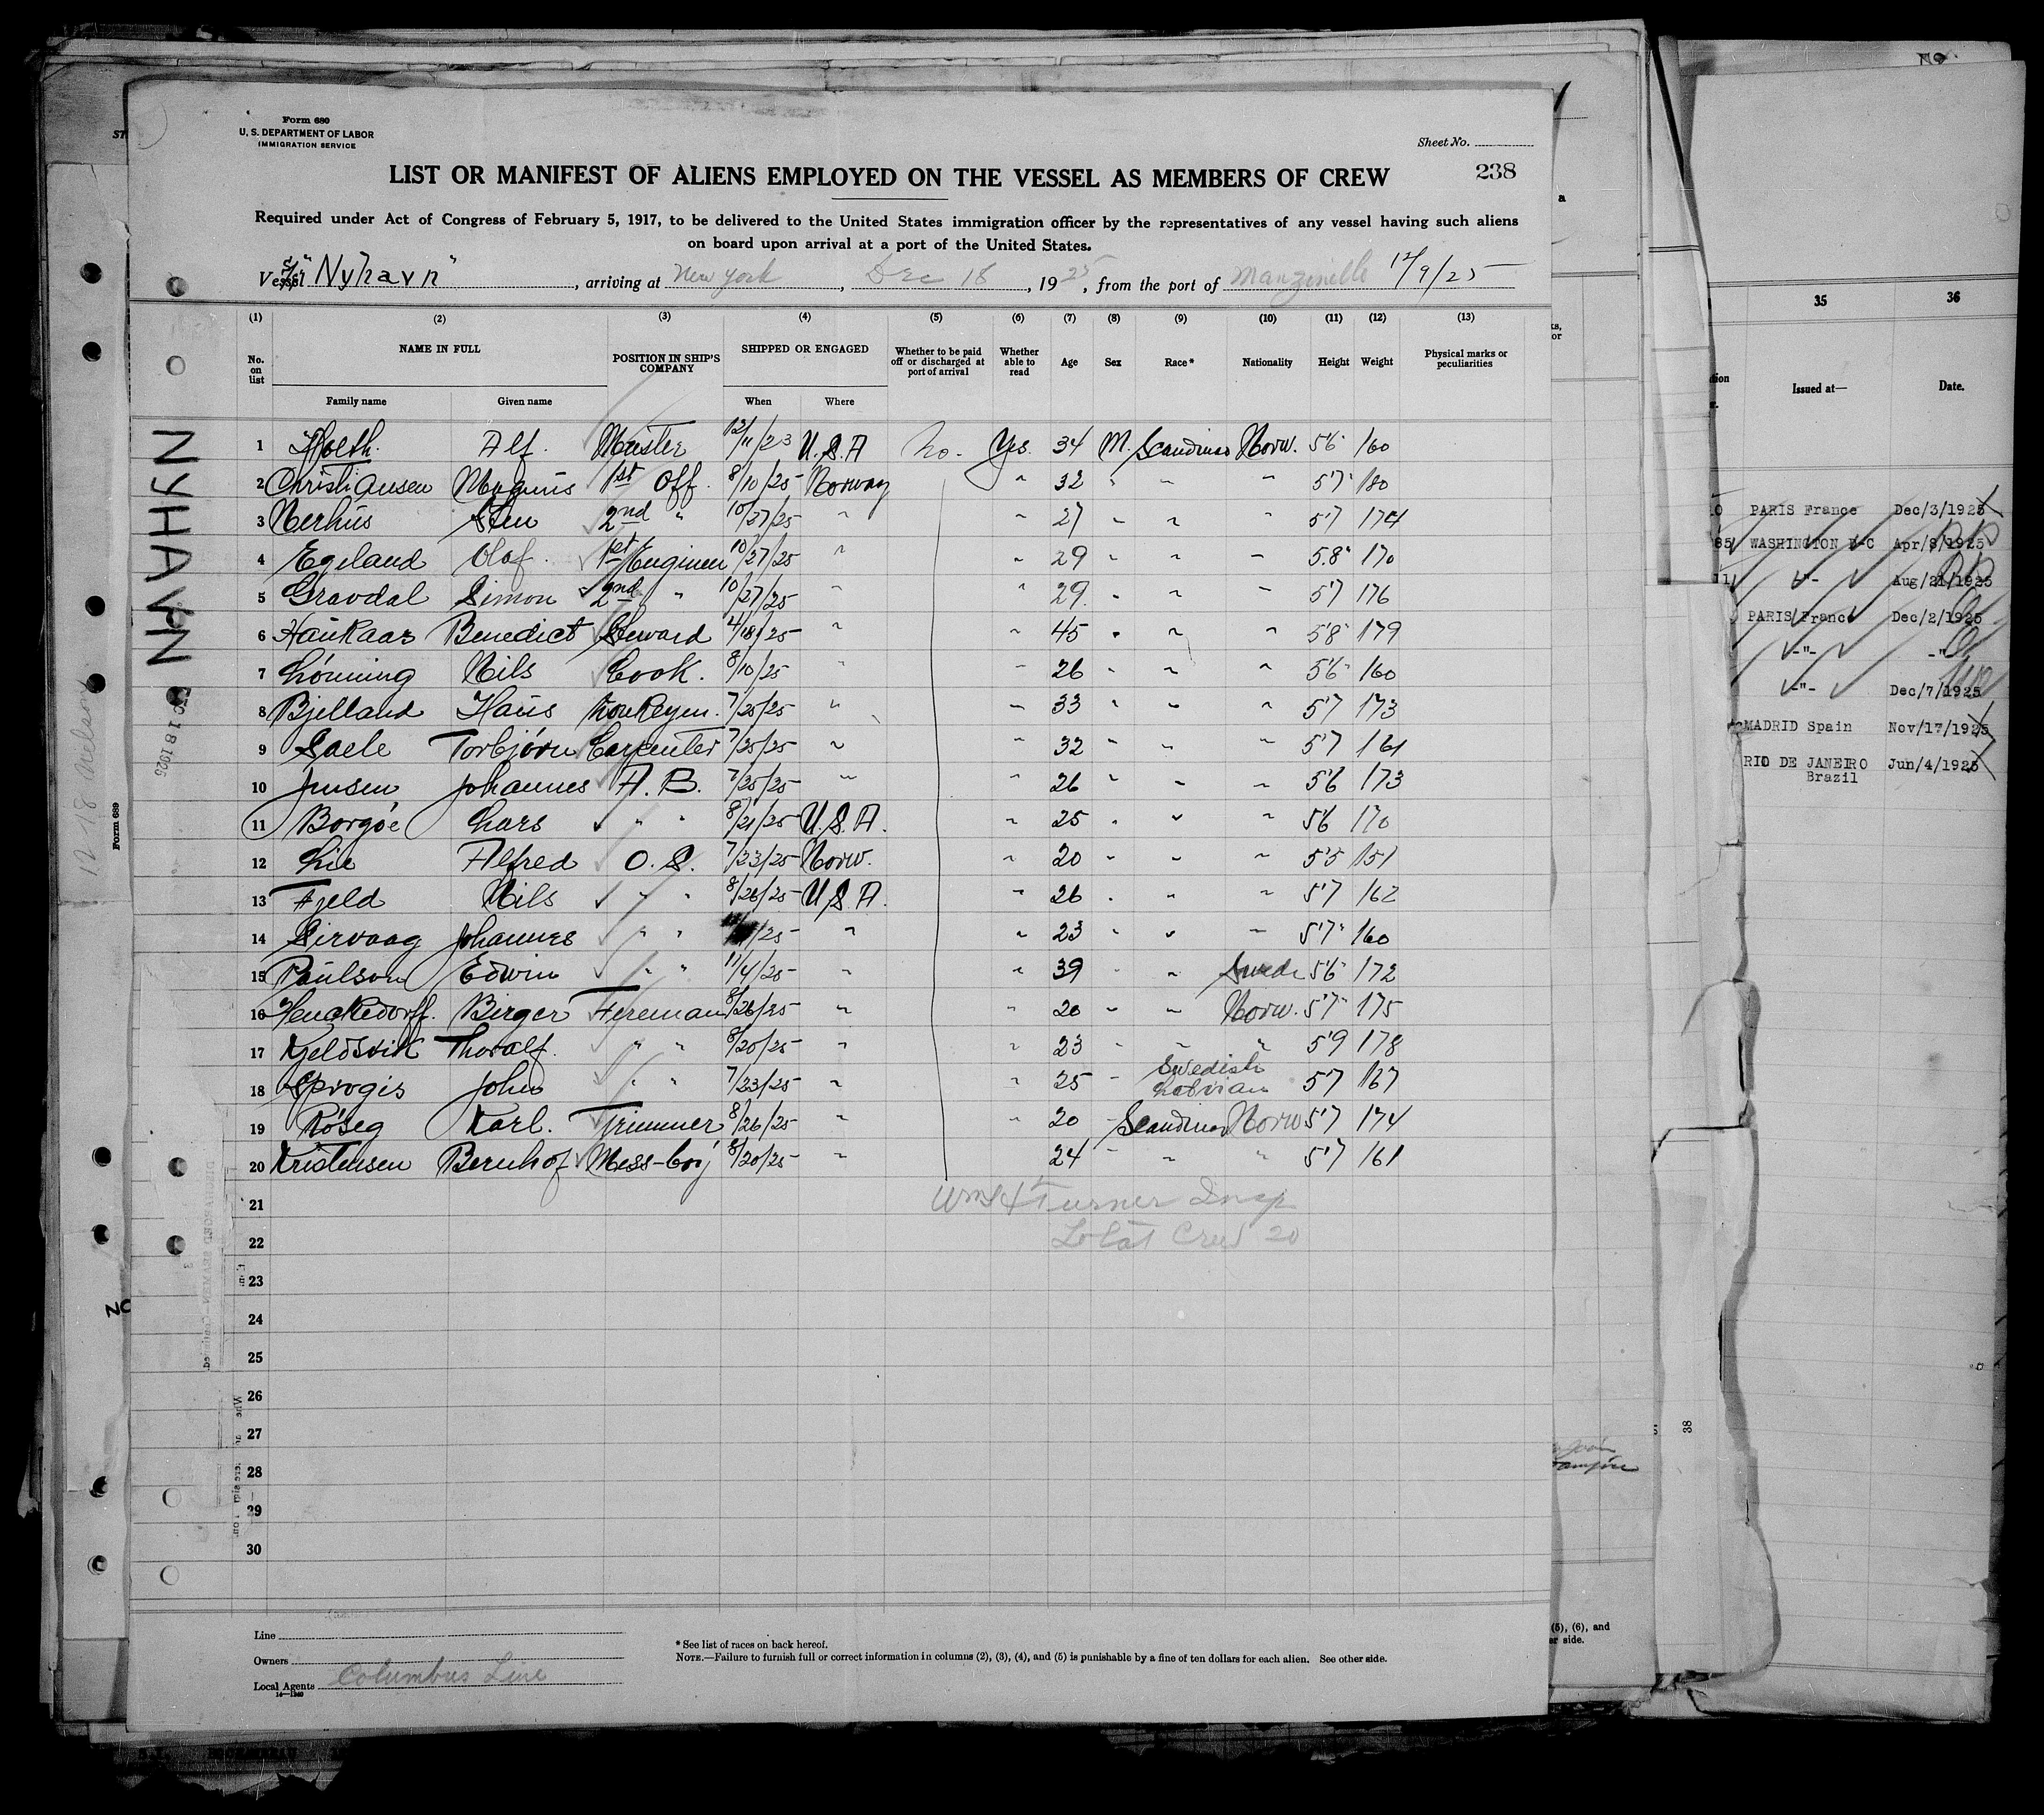 Form 680
U. S. DEPARTMENT OF LABOR
IMMIGRATION SERVICE
Sheet No.
238
LIST OR MANIFEST OF ALIENS EMPLOYED ON THE VESSEL AS MEMBERS OF CREW
Required under Act of Congress of February 5, 1917, to be delivered to the United States immigration officer by the representatives of any vessel having such aliens
on board upon arrival at a port of the United States.
Vessel S/S "Nyhavn", arriving at New York, Dec 18, 1925, from the port of Manzinillo 12/9/25
(1) (2) (3) (4) (5) (6) (7) (8) (9) (10) (11) (12) (13)
No. on list NAME IN FULL POSITION IN SHIP'S COMPANY SHIPPED OR ENGAGED Whether to be paid off or discharged at port of arrival Whether able to read Age Sex Race* Nationality Height Weight Physical marks or peculiarities
Family name Given name When Where
1 Alf. Master 12/11/23 U.S.A No. Yes. 34 M. Scandinav Norw. 5'6" 160
2 Christiansen Magnus 1st Off. 8/10/25 Norway " 32 " " " 5'7" 180
3 Nerhus 2nd " 10/27/25 " " 27 " " 5'7 174
4 Egeland Olof. 1st Enginen 10/27/25 " " 29 " " " 5.8" 170
5 Gravdal Simon 2nd " 10/27/25 " " 29. " " " 5'7 176
6 Haukaas Benedict Steward 4/18/25 " " 45 " " " 5'8" 179
7 Lónning Nils Cook. 8/10/25 " " 26 " " " 5'6" 160
8 Bjelland Hans 7/25/25 " " 33 " " " 5'7 173
9 Saele Torbjórn Carpenter 7/25/25 " " 32 " " " 5'7 161
10 Jensen Johannes A.B. 7/25/25 " " 26 " " " 5'6 173
11 Borgóe Lars " " 8/21/25 U.S.A. " 25 " " " 5'6 170
12 Lie Alfred O.S. 7/23/25 Norw. " 20 " " " 5'5 151
13 Fjeld Nils " " 8/26/25 U.S.A. " 26 " " " 5'7 162
14 Sirvaag Johannes " " /25 " " 23 " " " 5'7" 160
15 Paulson Edwin " " 11/4/25 " " 39 " " Swede 5'6" 172
16 Henckedorff. Birger Fireman 8/26/25 " " 20 " " Norw. 5'7" 175
17 Kjeldsvik Thoralf. " " 8/20/25 " " 23 " " " 5'9 178
18 Sprogis John " " 7/23/25 " " 25 " Swedish Latvian 5'7 167
19 Róseg Karl. Trimmer 8/26/25 " " 20 " Scandinav Norw 5'7 174
20 Kristensen Bernhof Mess-boy 8/20/25 " 24 " " " 5'7 161
21 Wm H Turner Insp
22 Total Crew 20
23
24
25
26
27
28
29
30
Line
Owners
Local Agents Columbus Line
14—1240
* See list of races on back hereof.
NOTE.—Failure to furnish full or correct information in columns (2), (3), (4), and (5) is punishable by a fine of ten dollars for each alien. See other side.
NYHAVN
12-18 Nelson
Form 689
35 36
Issued at— Date.
PARIS France Dec/3/1925
85 WASHINGTON D-C Apr/8/1925
11 -"- Aug/21/1925
PARIS France Dec/2/1925
-"- -"-
-"- Dec/7/1925
MADRID Spain Nov/17/1925
RIO DE JANEIRO Jun/4/1925
Brazil
38
(5), (6), and
er side.